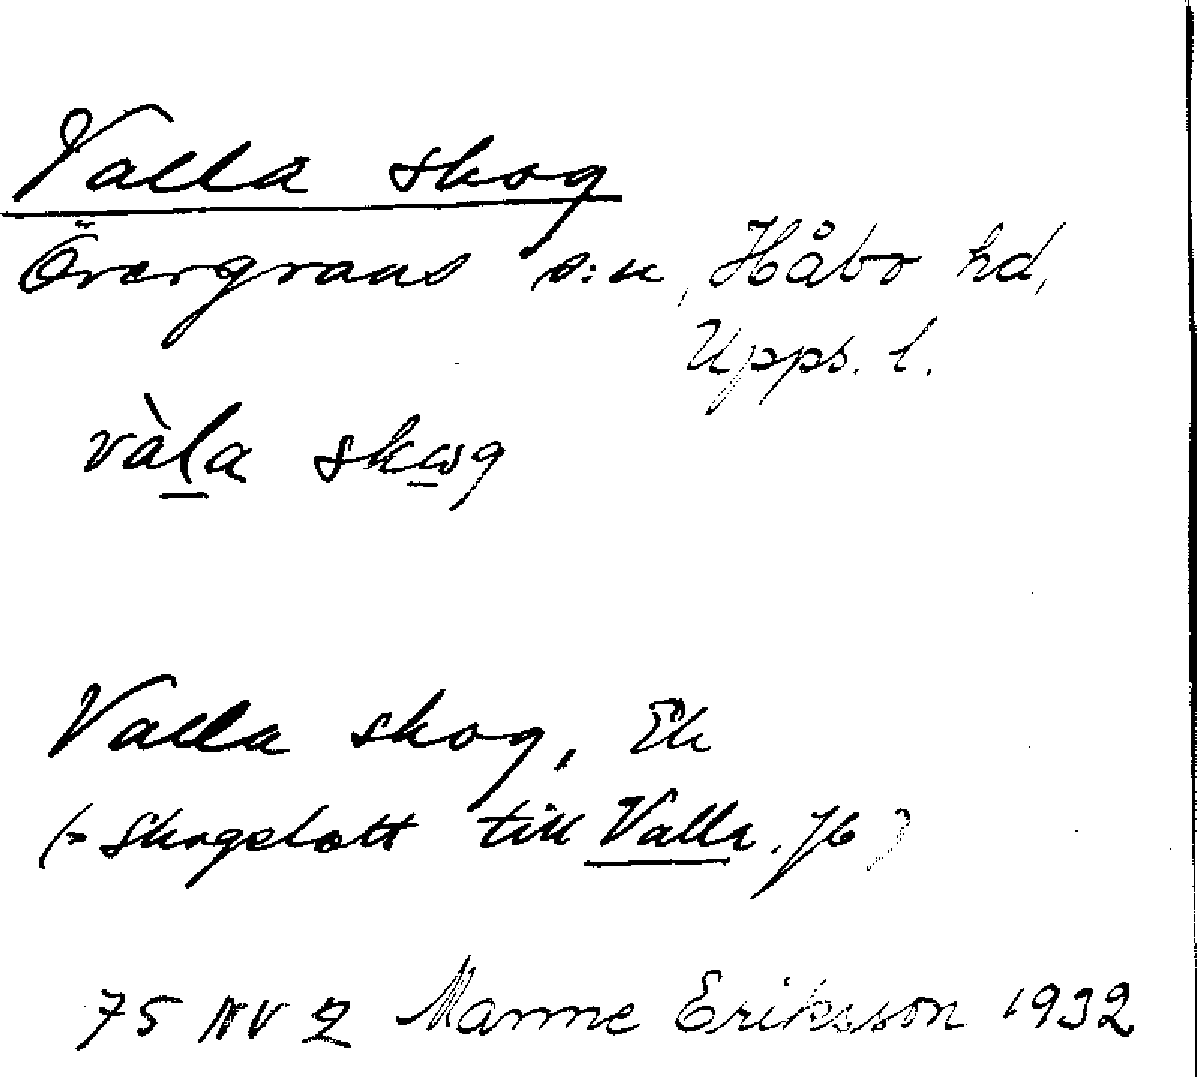 Valla skog
Övergrans s:n, Håbo hd,
Upps. l.
vàla skωg
Valla skog, Ek
(= Skogslott till Valla. Jb)
75 NV 2 Manne Eriksson 1932